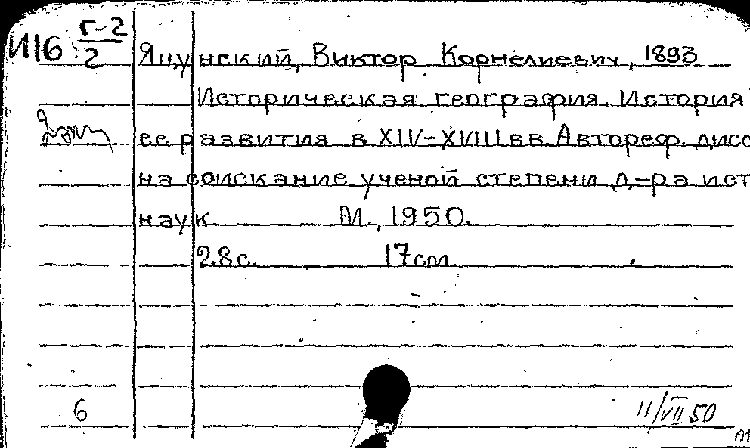 И16 Г-2/2
Яцунский, Виктор Корнелиевич, 1893
Историческая география. История
ее развития в XIV-XVIII вв. Автореф. дисс
на соискание ученой степени д-ра ист
наук. М., 1950.
28 с. 17 см
6 11/VII 50